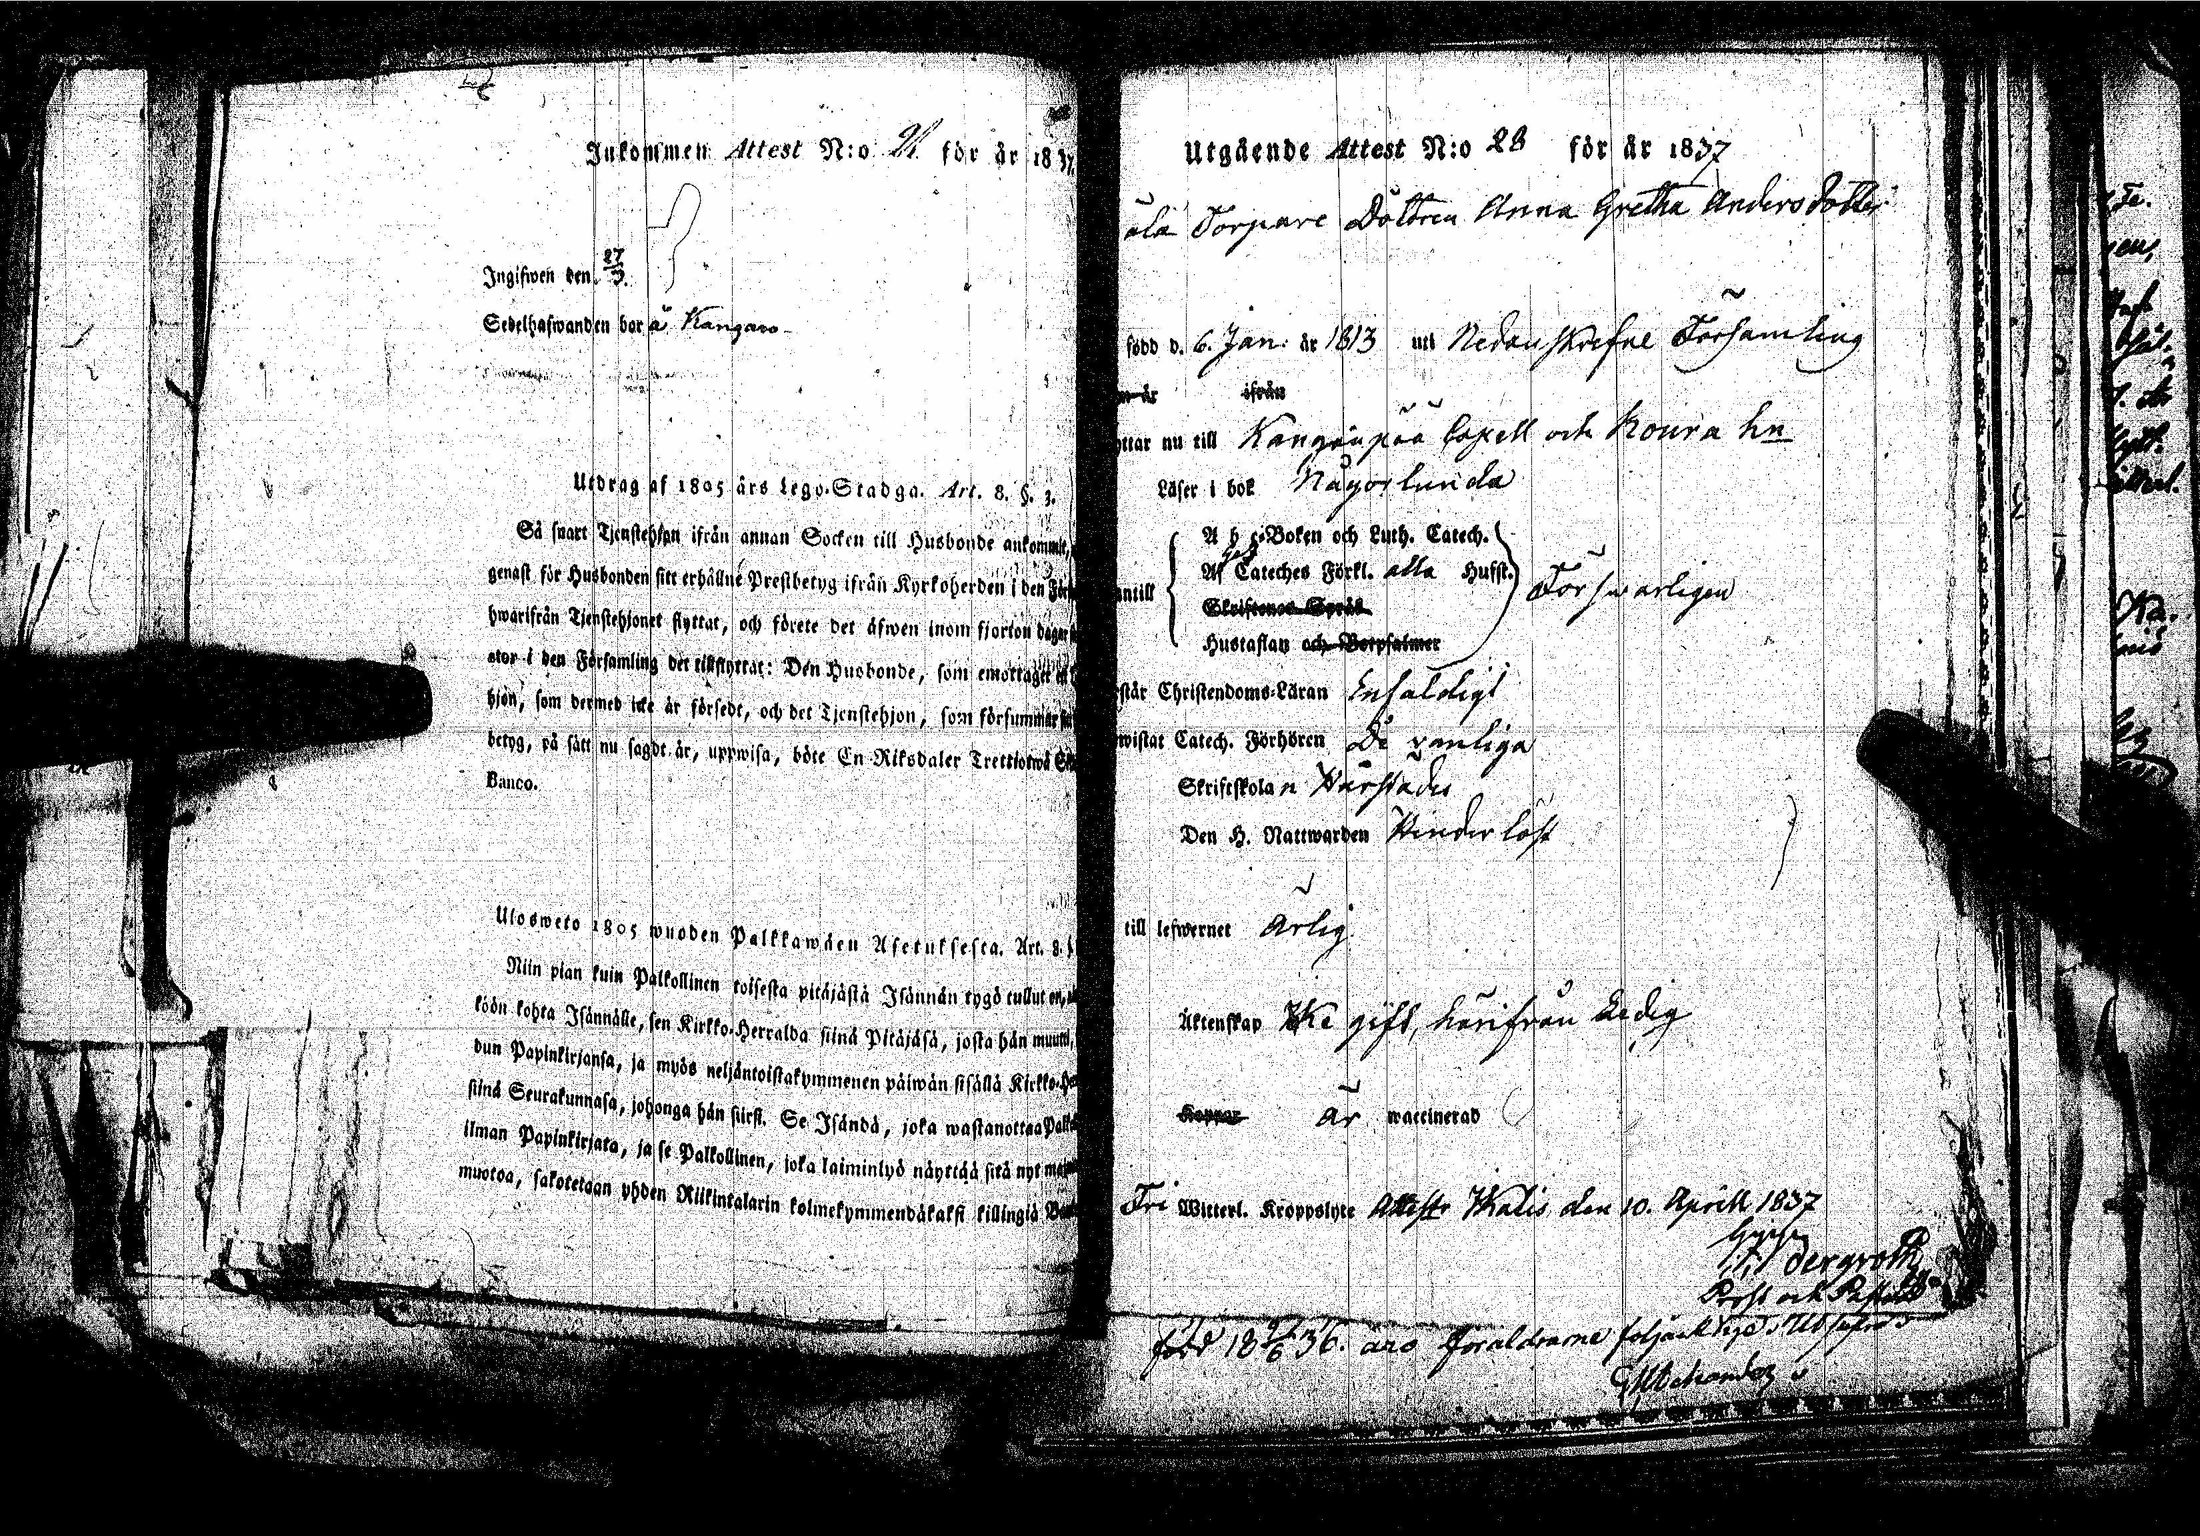 Inkommen Attest N:o för år 1837.
Ingifwen den 27/3.
Sedelhafwanden bor å Kangaro
Utdrag af 1805 års Lego-Stadga. Art. 8. §. 3.
Så snart Tjenstehjon ifrån annan Socken till Husbonde ankommit,
genast för Husbonden sitt erhållne Prestbetyg ifrån Kyrkoherden i den
hwarifrån Tjenstehjonet flyttat, och förete det äfwen inom fjorton dagar
stor i den Församling det tillflyttat: Den Husbonde, som emottager
hjon, som dermed icke är försedt, och det Tjenstehjon, som försummar
betyg, på sätt nu sagdt är, uppwisa, böte En Riksdaler Trettiotwå
Banco.
Ulosweto 1805 wuoden Palkkawäen Asetuksesta. Art. 8.
Niin pian kuin Palkollinen toisesta pitäjästä Isännän tygö tullut on,
köön kohta Isännälle, sen Kirkko-Herralda siinä Pitäjäsä, josta hän muutti,
dun Papinkirjansa, ja myös neljäntoistakymmenen päiwän sisällä
siinä Seurakunnasa, johonga hän siirsi. Se Isändä, joka wastanottaa
ilman Papinkirjata, ja se Palkollinen, joka laiminlyö näyttää sitä nyt
muotoa, sakotetaan yhden Riikintalarin kolmekymmendäkaksi killingiä
Utgående Attest N:o 28 för år 1837
Torpare Dottren Anna Gretha Andersdotter
född d. 6. Jan: år 1813 uti Nedanskrefne Församling
år ifrån
nu till Kangånpää Capell och Koura hn
Läser i bok Någorlunda
A b c-Boken och Luth. Catech.
antill Af Cateches Förkl. alla Hufst. Förswarligen
Skriftenes Språk
Hustaflan och Botpsalmer
Christendoms-Läran Enfaldigt
Catech. Förhören De vanliga
Skriftskolan Härstädes
Den H. Nattwarden Hinderlöst
till lefwernet ärlig.
Äktenskap Icke gift, härifrån Ledig
Koppor är waccinerad
Fri Witterl. Kroppslyte Attestr Ikalis den 10. Aprill 1837
Bergroth
Prost och
född 18 36. äro föräldrarne